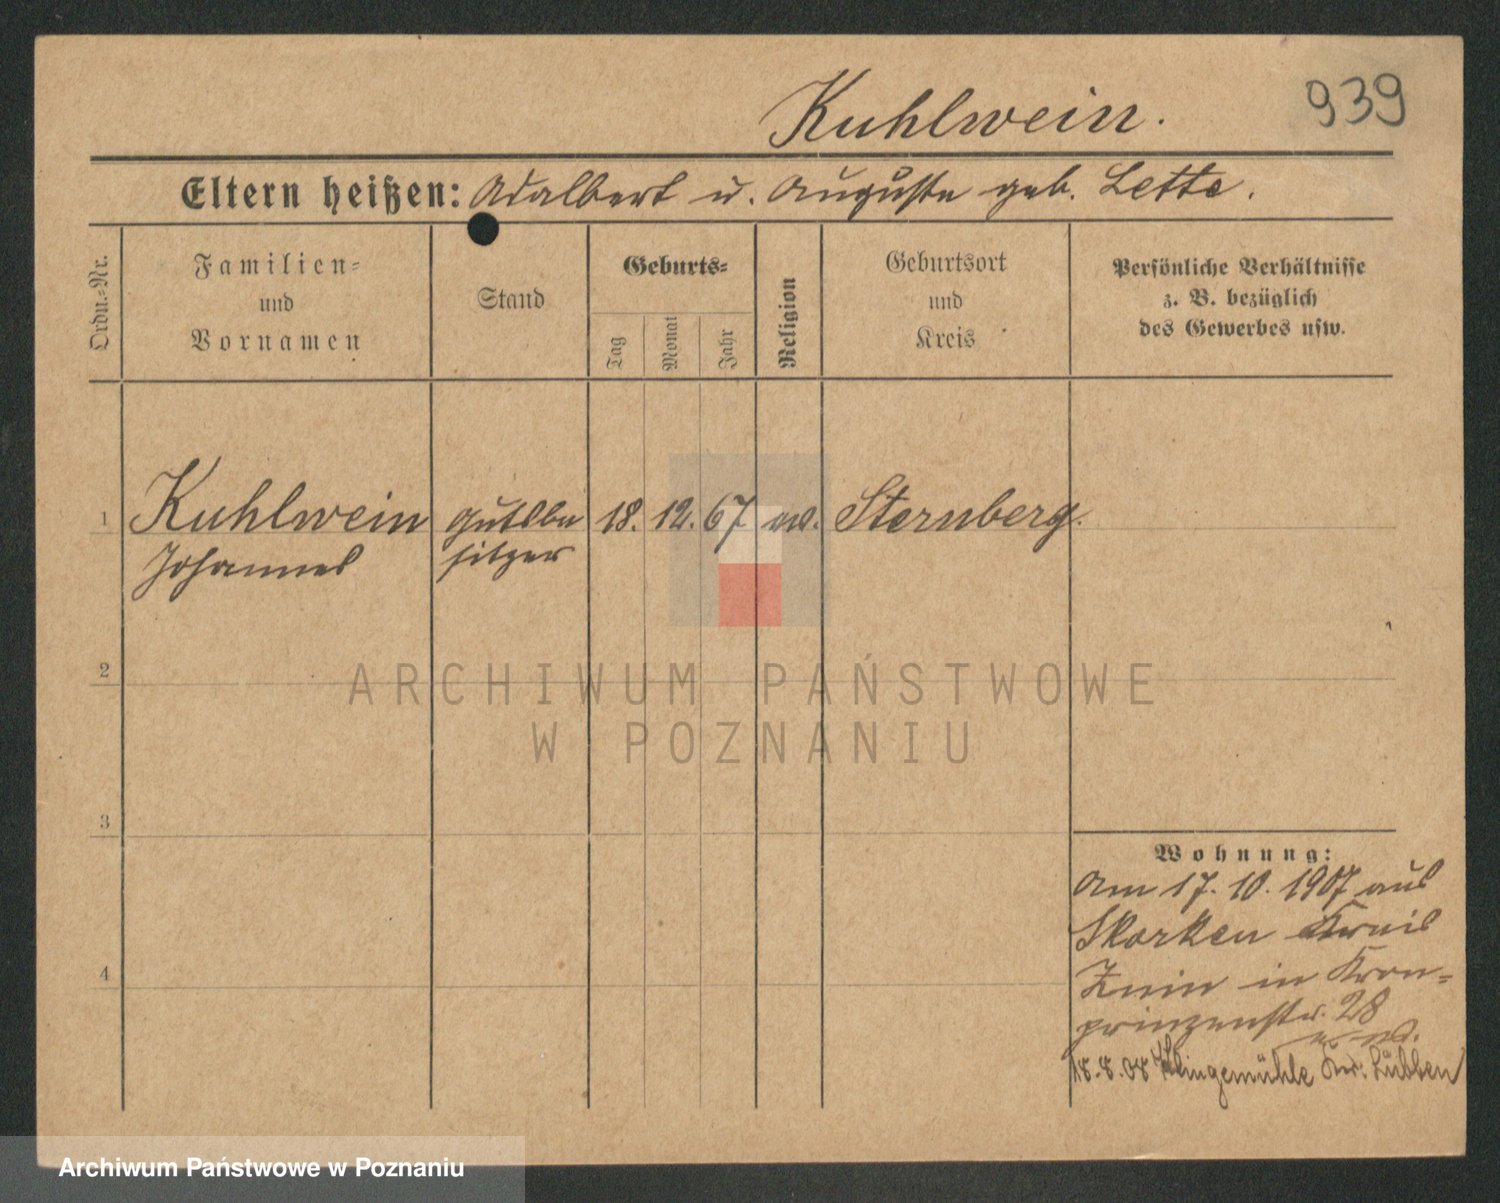 939
Kuhlwein.
Eltern heißen: Adalbert u. Auguste geb. Lette.
Ordn.-Nr.
Familien-
und
Vornamen
Stand
Geburts-
Tag
Monat
Jahr
Religion
Geburtsort
und
Kreis
Persönliche Verhältnisse
z. B. bezüglich
des Gewerbes usw.
1 Kuhlwein Gutsbe 18. 12. 67 ev. Sternberg.
Johannes sitzer
2
ARCHIWUM PAŃSTWOWE
W POZNANIU
3
4
Wohnung:
Am 17. 10. 1907 aus
Skorken Kreis
Znin in Kron-
prinzenstr. 28
18.8.08 Klingemühle Kr. Lübben
Archiwum Państwowe w Poznaniu